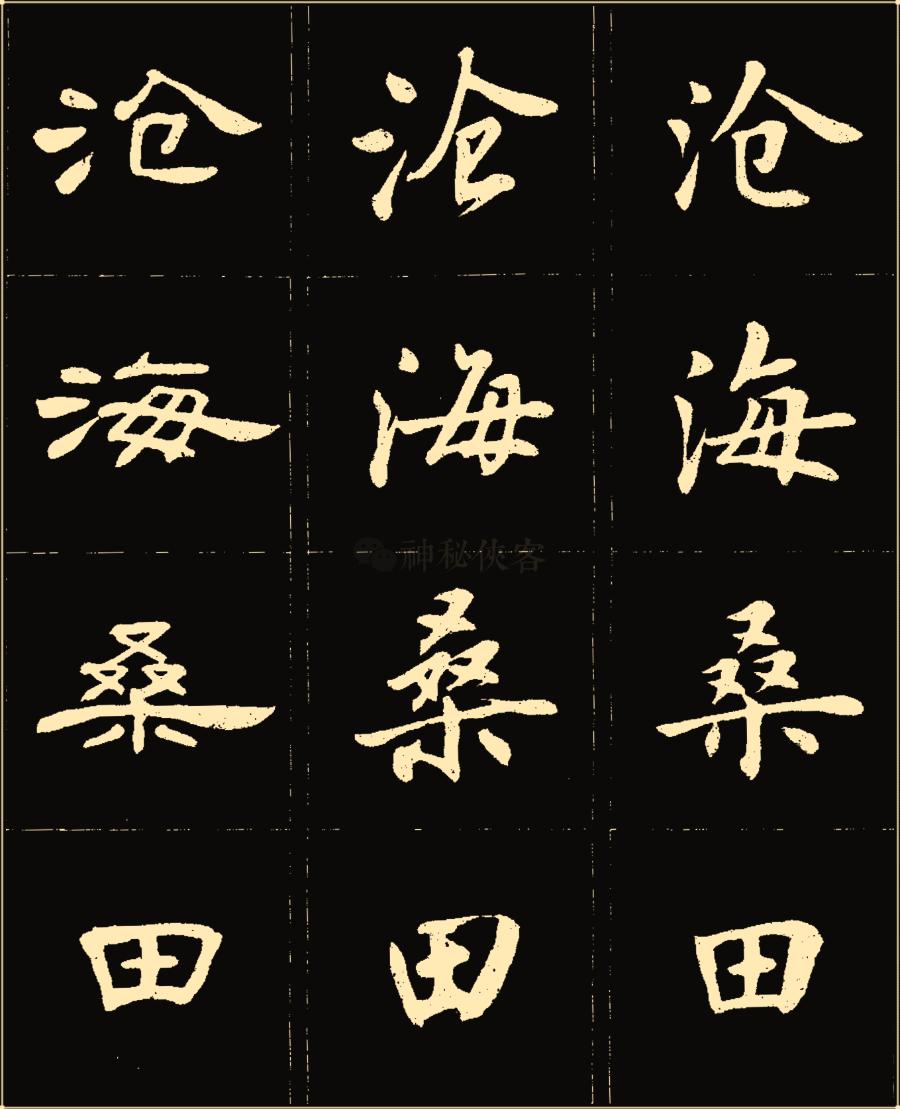 沧海桑田
沧海桑田
沧海桑田
神秘俠客